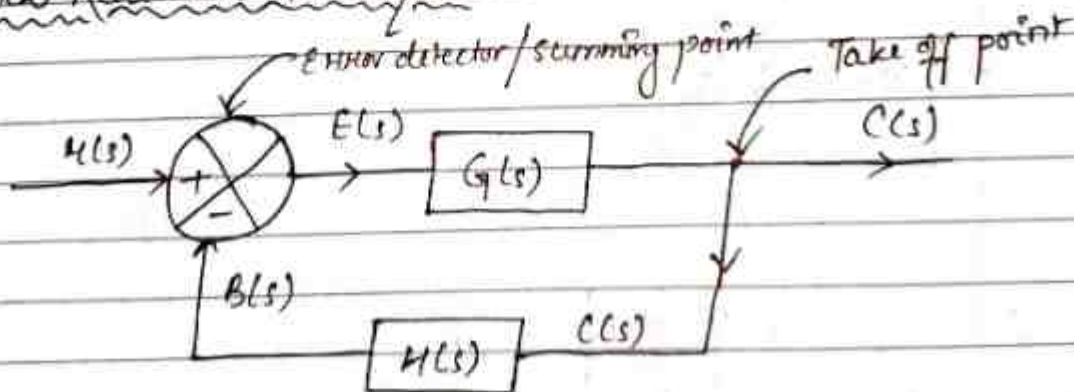 Error detector/summing point
Take off point
R(s)
+
-
E(s)
G(s)
C(s)
B(s)
H(s)
C(s)